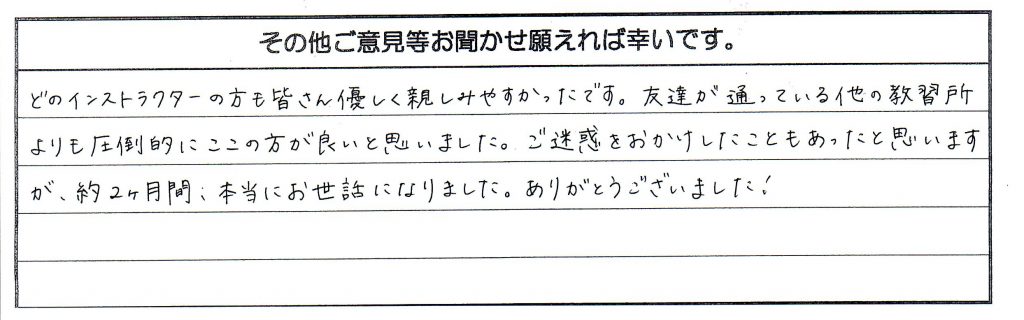 その他ご意見等お聞かせ願えれば幸いです。
どのインストラクターの方も皆さん優しく親しみやすかったです。友達が通っている他の教習所
よりも圧倒的にここの方が良いと思いました。ご迷惑をおかけしたこともあったと思います
が、約2ヶ月間、本当にお世話になりました。ありがとうございました!